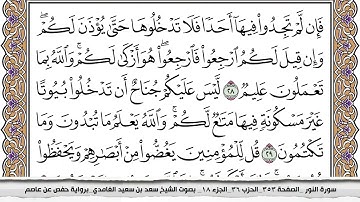 فَإِن لَّمْ تَجِدُوا۟ فِيهَآ أَحَدًا فَلَا تَدْخُلُوهَا حَتَّىٰ يُؤْذَنَ لَكُمْ ۖ
وَإِن قِيلَ لَكُمُ ٱرْجِعُوا۟ فَٱرْجِعُوا۟ ۖ هُوَ أَزْكَىٰ لَكُمْ ۚ وَٱللَّهُ بِمَا
تَعْمَلُونَ عَلِيمٌ ٢٨ لَّيْسَ عَلَيْكُمْ جُنَاحٌ أَن تَدْخُلُوا۟ بُيُوتًا
غَيْرَ مَسْكُونَةٍ فِيهَا مَتَٰعٌ لَّكُمْ ۚ وَٱللَّهُ يَعْلَمُ مَا تُبْدُونَ وَمَا
تَكْتُمُونَ ٢٩ قُل لِّلْمُؤْمِنِينَ يَغُضُّوا۟ مِنْ أَبْصَٰرِهِمْ وَيَحْفَظُوا۟
سورة النور _الصفحة ٣٥٣_ الحزب ٣٦_ الجزء ١٨_ بصوت الشيخ سعد بن سعيد الغامدي _برواية حفص عن عاصم